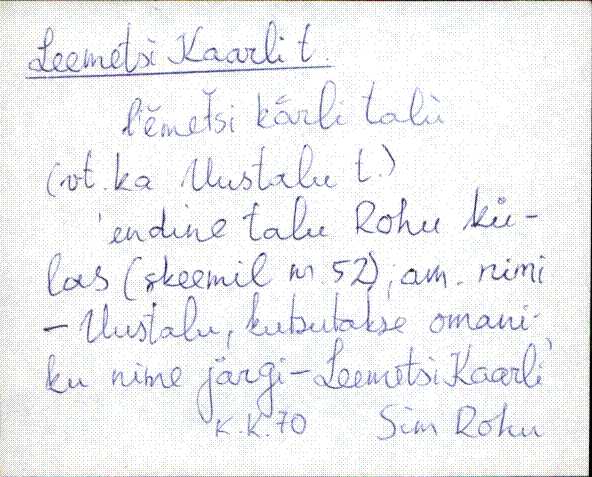 Leemetsi Kaarli t.
l'ēmet́si kārli talù
(vt. ka Uustalu t.)
'endine talu Rohu kü-
las (skeemil nr. 52), am. nimi
- Uustalu, kutsutakse omani-
ku nime järgi - Leemetsi Kaarli
K.K. 70 Sim Rohu